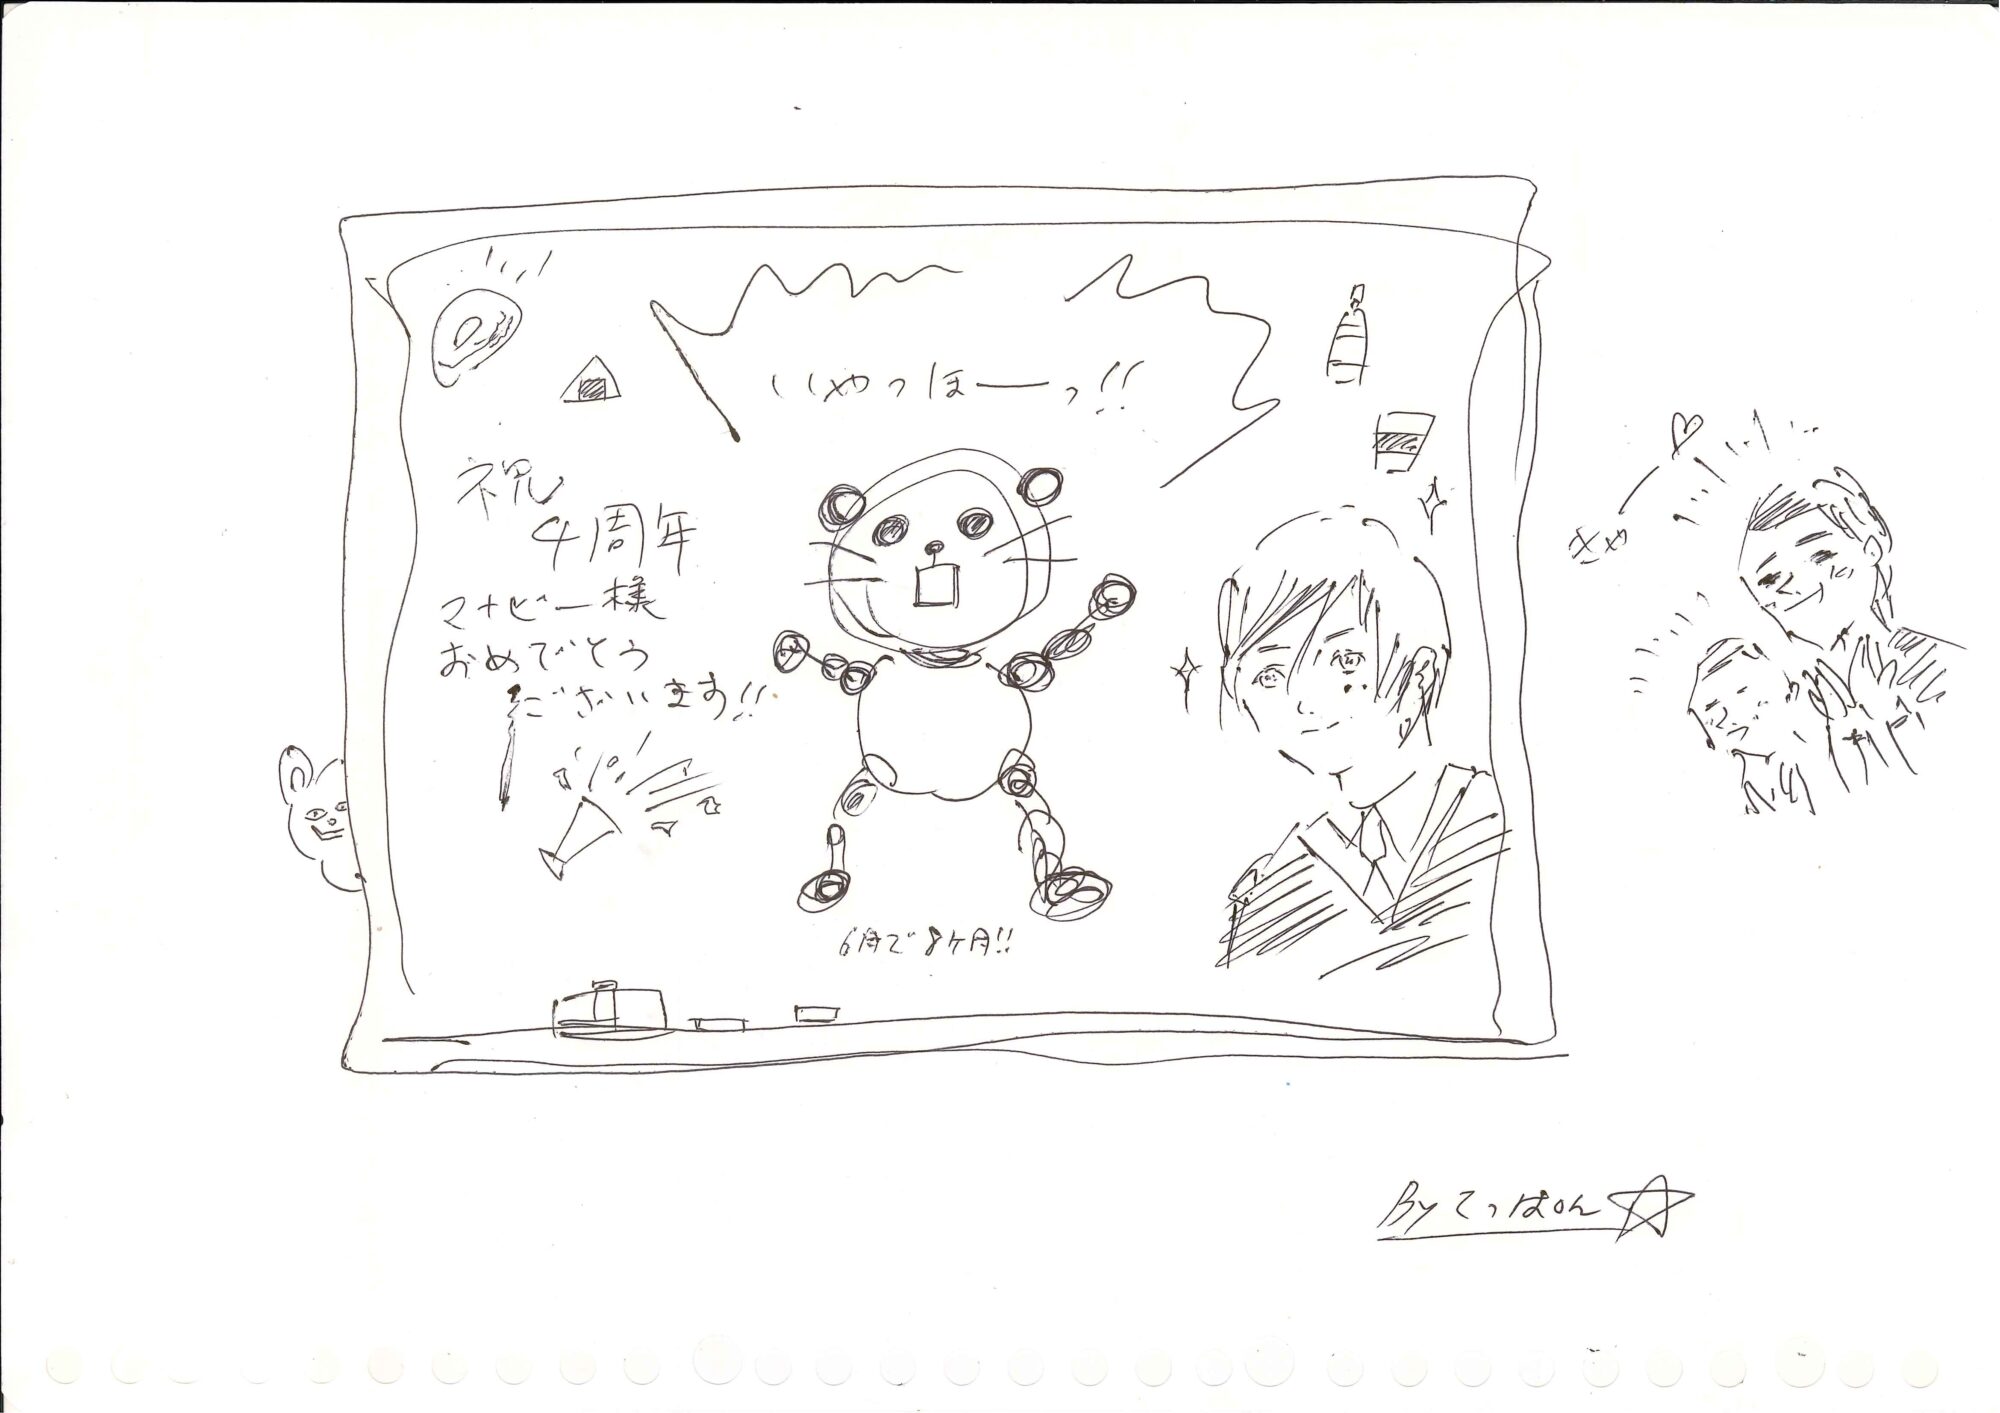 いやっほーっ!!
祝
4周年
マナビー様
おめでとう
ございます!!
6月で8ヶ月!!
きゃ♡
By てっぱん☆